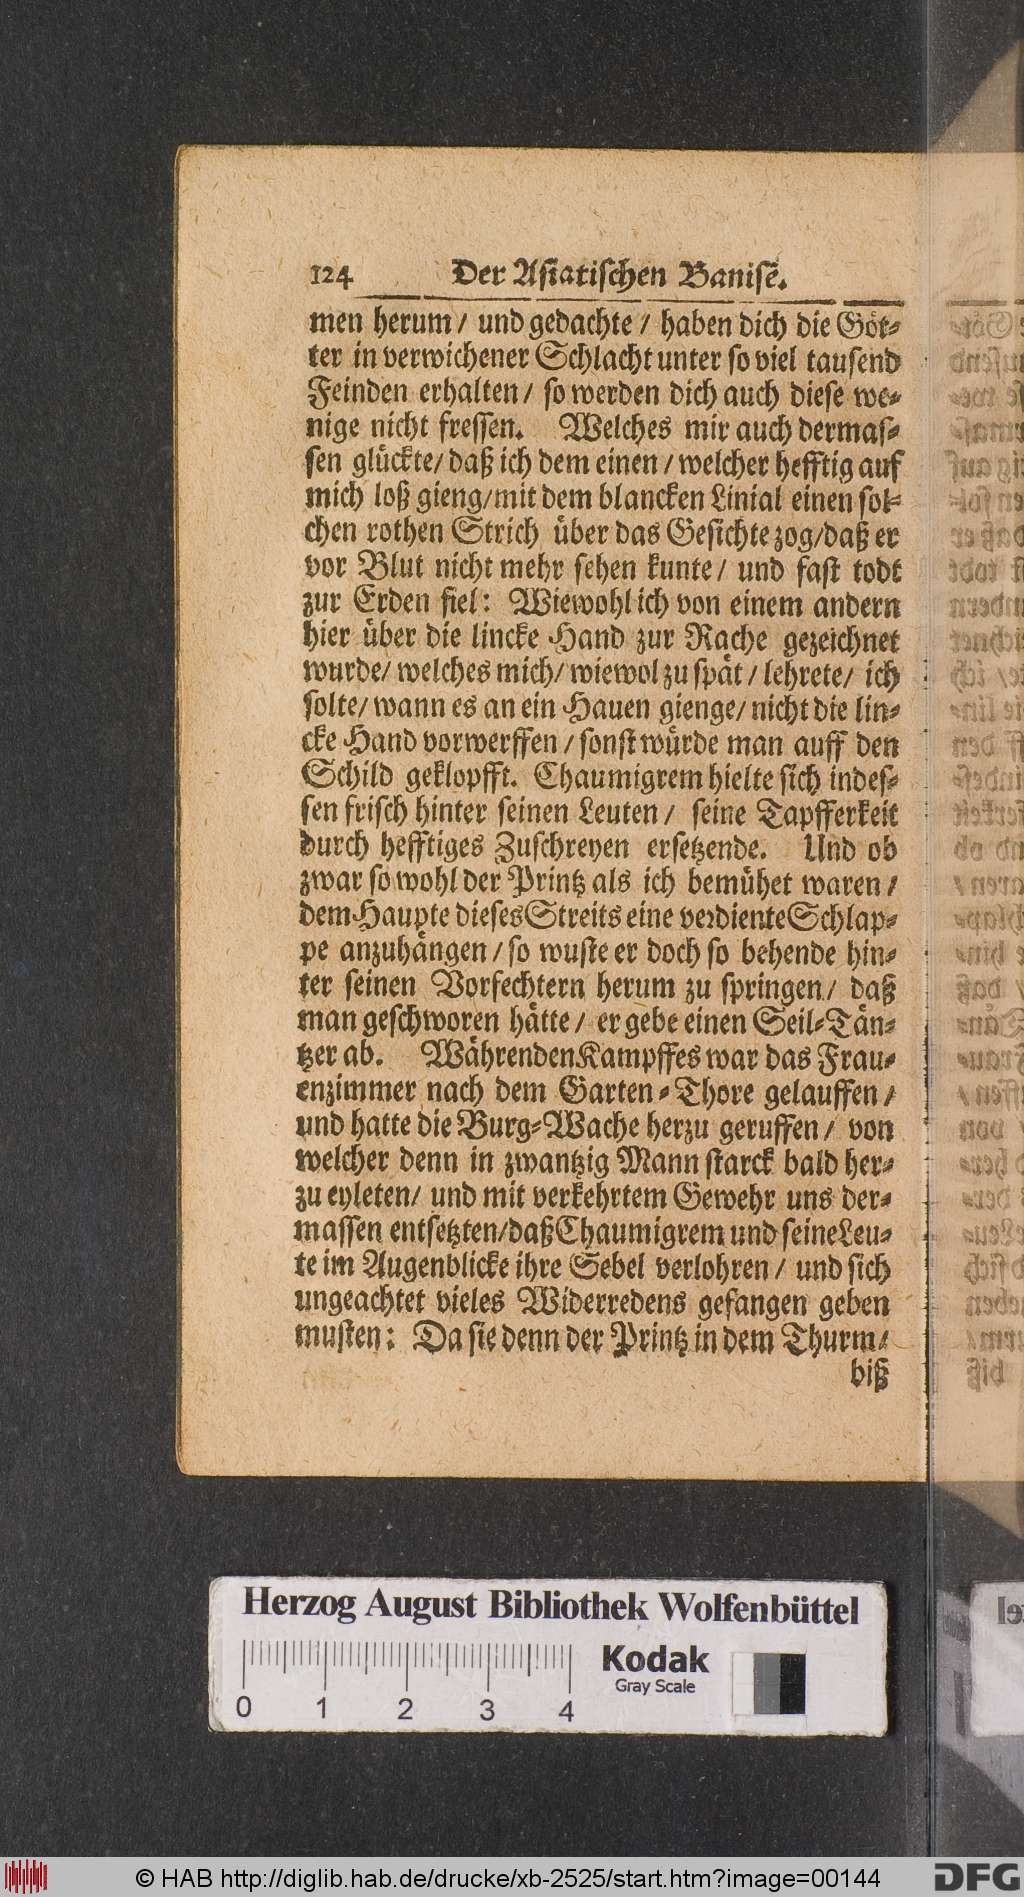 124 Der Asiatischen Banise.
men herum / und gedachte / haben dich die Göt-
ter in verwichener Schlacht unter so viel tausend
Feinden erhalten / so werden dich auch diese we-
nige nicht fressen. Welches mir auch dermas-
sen glückte / daß ich dem einen / welcher hefftig auf
mich loß gieng / mit dem blancken Linial einen sol-
chen rothen Strich über das Gesichte zog / daß er
vor Blut nicht mehr sehen kunte / und fast todt
zur Erden fiel: Wiewohl ich von einem andern
hier über die lincke Hand zur Rache gezeichnet
wurde / welches mich / wiewol zu spät / lehrete / ich
solte / wann es an ein Hauen gienge / nicht die lin-
cke Hand vorwerffen / sonst würde man auff den
Schild geklopfft. Chaumigrem hielte sich indes-
sen frisch hinter seinen Leuten / seine Tapfferkeit
durch hefftiges Zuschreyen ersetzende. Und ob
zwar so wohl der Printz als ich bemühet waren /
dem Haupte dieses Streits eine verdiente Schlap-
pe anzuhängen / so wuste er doch so behende hin-
ter seinen Vorfechtern herum zu springen / daß
man geschworen hätte / er gebe einen Seil-Tän-
tzer ab. Währenden Kampffes war das Frau-
enzimmer nach dem Garten-Thore gelauffen /
und hatte die Burg-Wache herzu geruffen / von
welcher denn in zwantzig Mann starck bald her-
zu eyleten / und mit verkehrtem Gewehr uns der-
massen entsetzten / daß Chaumigrem und seine Leu-
te im Augenblicke ihre Sebel verlohren / und sich
ungeachtet vieles Widerredens gefangen geben
musten: Da sie denn der Printz in dem Thurm /
biß
Herzog August Bibliothek Wolfenbüttel
Kodak
Gray Scale
0 1 2 3 4
© HAB http://diglib.hab.de/drucke/xb-2525/start.htm?image=00144
DFG